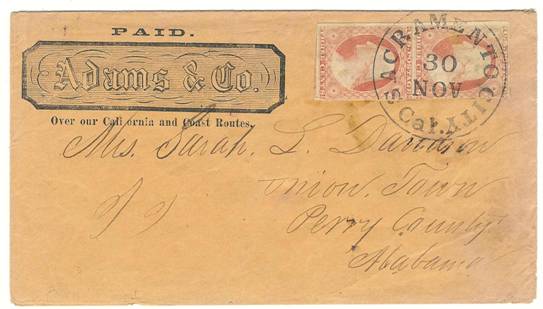 PAID.
Adams & Co.
Over our California and Coast Routes.
SACRAMENTO CITY.
30
NOV
Cal.
Mrs. Sarah. L. Davidson
Union Town
Perry County
Alabama